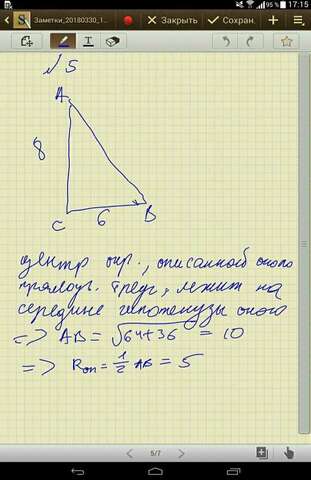 95 % 17:15
Заметки_20180330_1... Закрыть Сохран.
T
N5
A
8
6
C
B
центр окр., описанной около
прямоуг. треуг, лежит на
середине гипотенузы
=> AB = √64+36 = 10
=> Rоп = 1/2 AB = 5
5/7